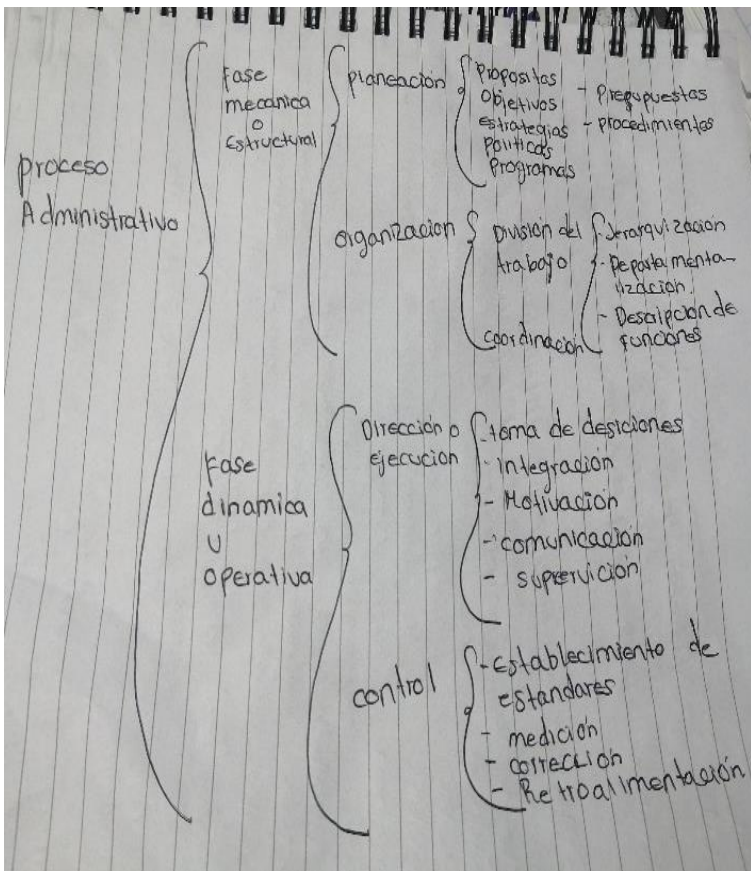 Proceso
Administrativo
Fase
mecanica
o
Estructural
planeación
Propositos
Objetivos
estrategias
politicas
Programas
- Presupuestas
- procedimientos
organización
División del
trabajo
coordinación
- Jerarquización
- Departamenta-
lización.
- Descripcion de
funciones
Fase
dinamica
U
operativa
Dirección o
ejecucion
- toma de desiciones
- integración
- Motivación
- comunicación
- supervición
control
- Establecimiento de
estandares
- medición
- corrección
- Retroalimentación